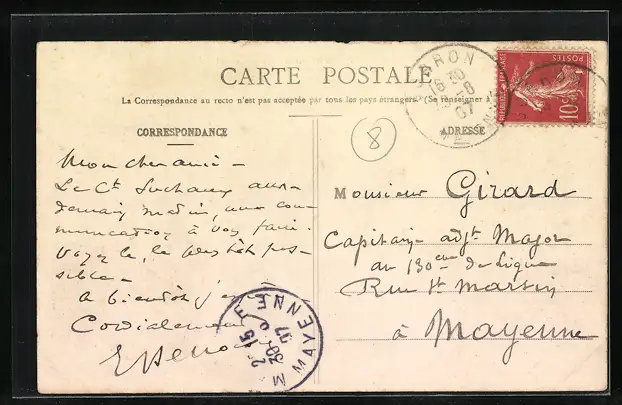 CARTE POSTALE
La Correspondance au recto n'est pas acceptée par tous les pays étrangers (Se renseigner à
CORRESPONDANCE
ADRESSE
8
Mon cher ami –
Le Ct aura
demain matin, une com-
munication à vous faire.
Voyez le, le plus tôt pos-
sible –
A bientôt
Cordialement
Monsieur Girard
Capitaine adjt Major
au 130eme de Ligne
Rue St Martin
à Mayenne
POSTES
10c
16 30
07
MAYENNE
2E 15
30
07